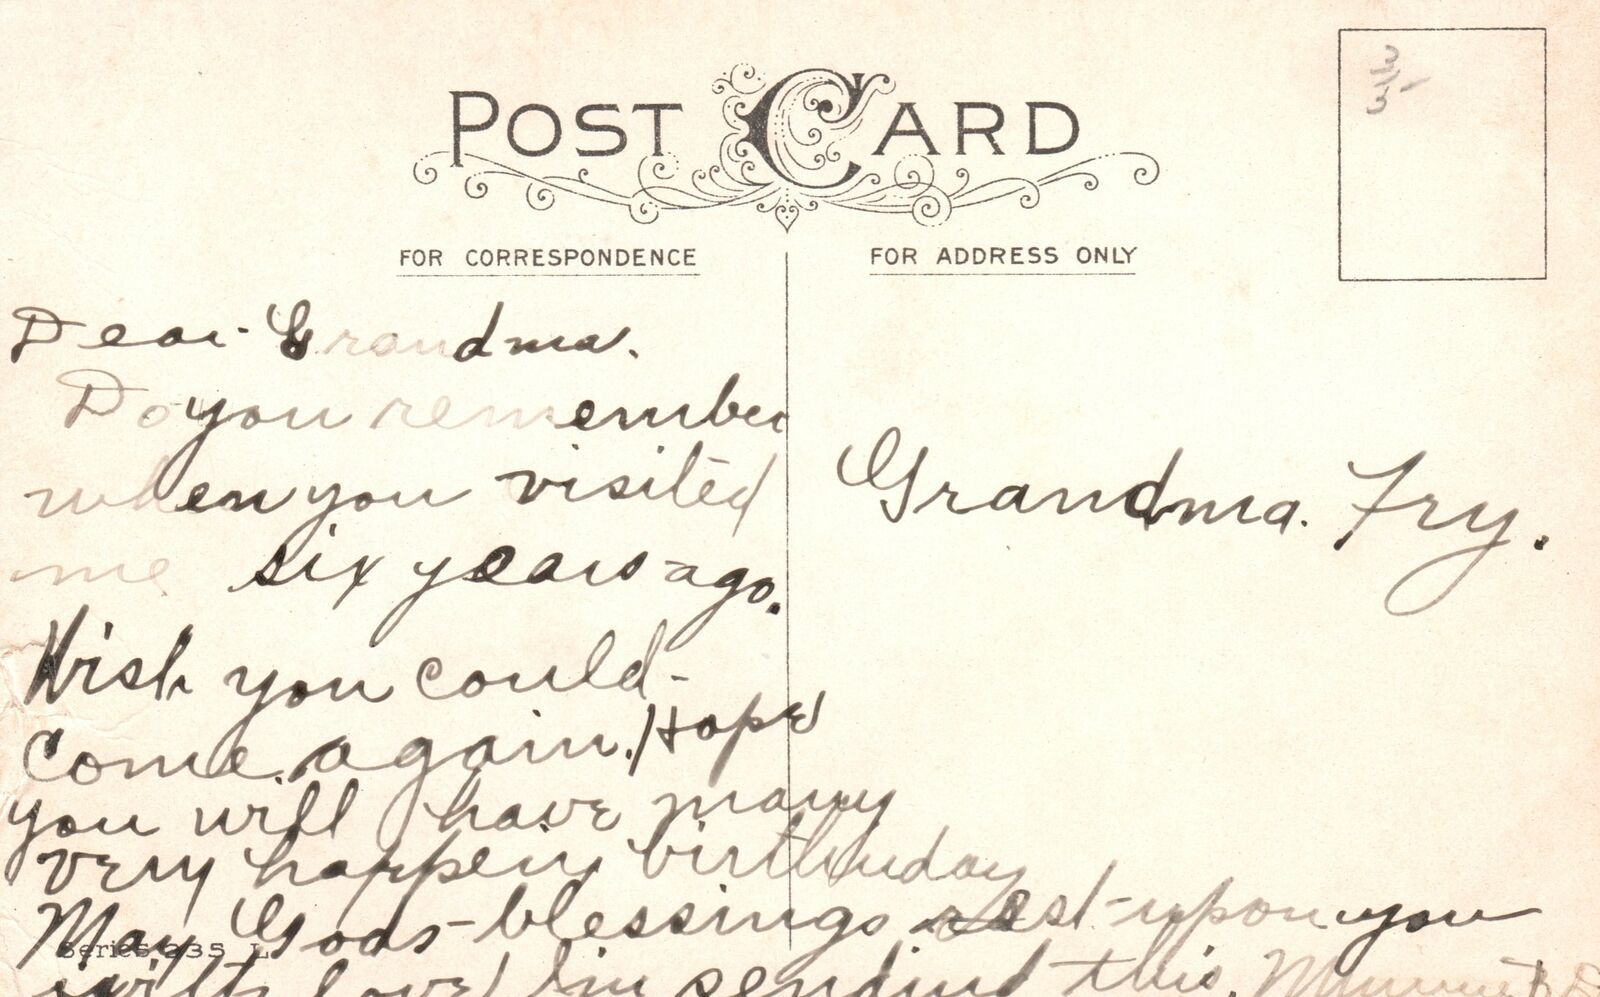 POST CARD
FOR CORRESPONDENCE
FOR ADDRESS ONLY
Dear Grandma.
Do you remember
when you visited
me six years ago.
Wish you could
come again. Hope
you will have many
very happy birthday
May Gods blessings rest upon you
with love I'm sending this. Minnie
Grandma. Fry.
Series 235 L